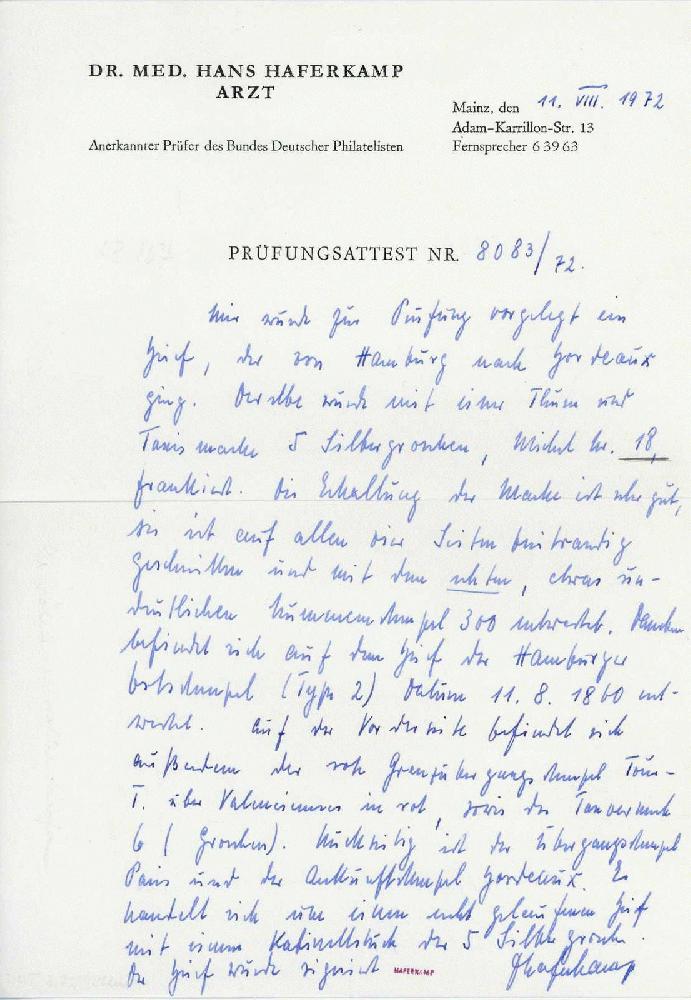 DR. MED. HANS HAFERKAMP
ARZT
Mainz, den 11. VIII. 1972
Adam-Karrillon-Str. 13
Fernsprecher 6 39 63
Anerkannter Prüfer des Bundes Deutscher Philatelisten
PRÜFUNGSATTEST NR. 8083/72.
Mir wurde zur Prüfung vorgelegt ein
Brief, der von Hamburg nach Bordeaux
ging. Derselbe wurde mit einer Thurn und
Taxis marke 5 Silbergroschen, Michel Nr. 18,
frankiert. Die Erhaltung der Marke ist sehr gut,
sie ist auf allen vier Seiten breitrandig
geschnitten und mit dem echten, etwas un-
deutlichen Nummernstempel 300 entwertet. Daneben
befindet sich auf dem Brief der Hamburger
Ortsstempel (Type 2) Datum 11. 8. 1860 ent-
wertet. Auf der Vorderseite befindet sich
außerdem der rote Grenzübergangsstempel Tour-
T. über Valenciennes in rot, sowie der Taxvermerk
6 (Groschen). Rückseitig ist der Übergangsstempel
Paris und der Ankunftstempel Bordeaux. Es
handelt sich um einen echt gelaufenen Brief
mit einem Kabinettstück der 5 Silbergroschen.
Der Brief wurde signiert HAFERKAMP
HHaferkamp